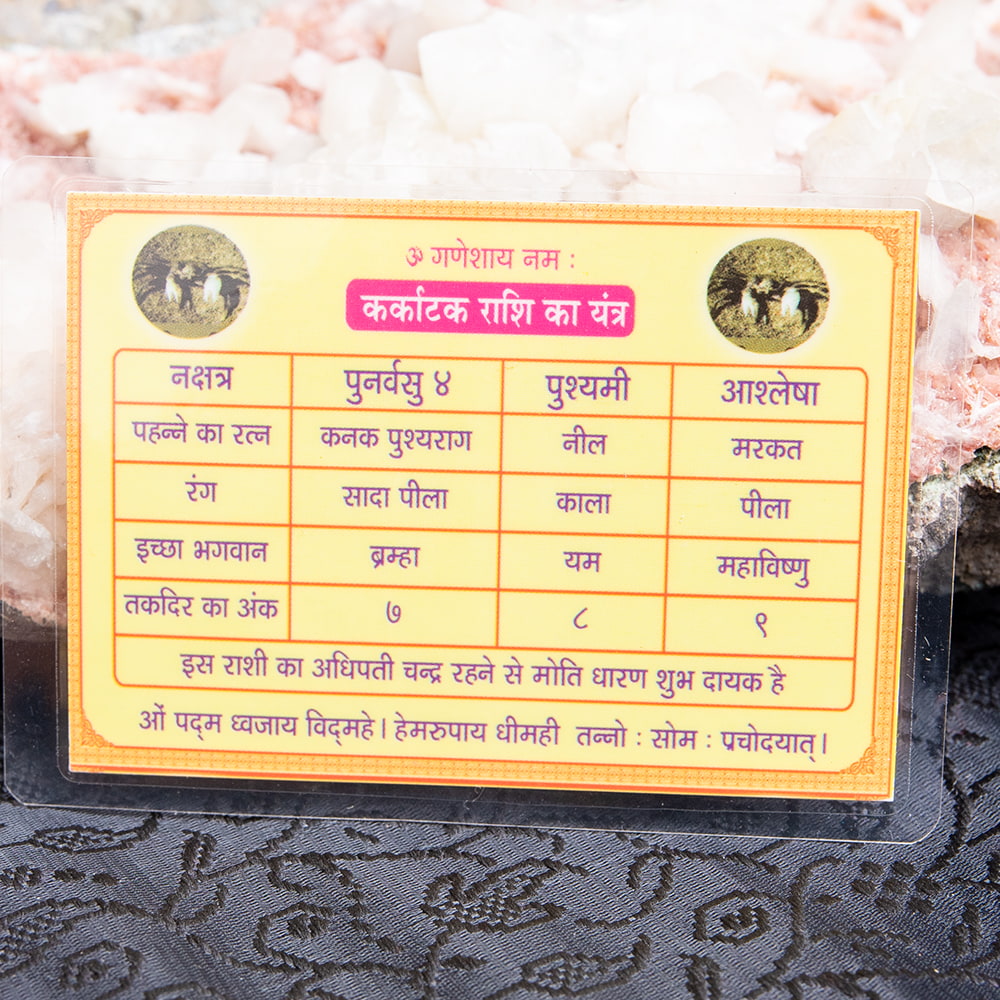 ॐ गणेशाय नम :
कर्काटक राशि का यंत्र
नक्षत्र पुनर्वसु ४ पुश्यमी आश्लेषा
पहन्ने का रत्न कनक पुश्यराग नील मरकत
रंग सादा पीला काला पीला
इच्छा भगवान ब्रम्हा यम महाविष्णु
तकदिर का अंक ७ ८ ९
इस राशी का अधिपती चन्द्र रहने से मोति धारण शुभ दायक है
ओं पद्म ध्वजाय विद्महे। हेमरुपाय धीमही तन्नो : सोम : प्रचोदयात्।